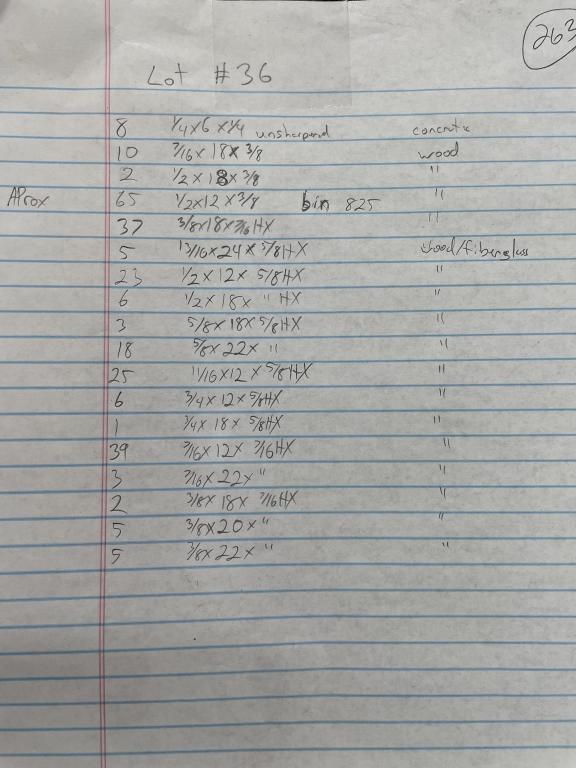 263
Lot #36
8 1/4x6x1/4 unsharpend concrete
10 7/16x18x3/8 wood
2 1/2x18x3/8 "
AProx 65 1/2x12x3/8 bin 825 "
37 3/8x18x7/16HX "
5 13/16x24x5/8HX wood/fiberglass
23 1/2x12x5/8HX "
6 1/2x18x " HX "
3 5/8x18x5/8HX "
18 5/8x22x " "
25 11/16x12x5/8HX "
6 3/4x12x5/8HX "
1 3/4x18x5/8HX "
39 7/16x12x7/16HX "
3 7/16x22x " "
2 3/8x18x7/16HX "
5 3/8x20x " "
5 3/8x22x " "